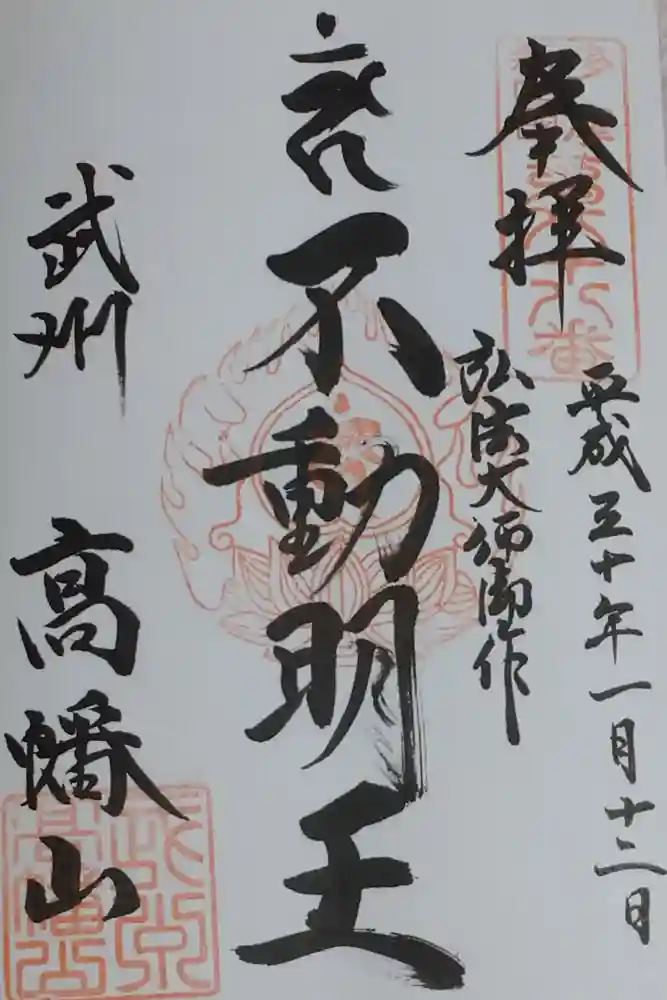 奉拝
平成三十年一月十二日
弘法大師御作
不動明王
武州 高幡山